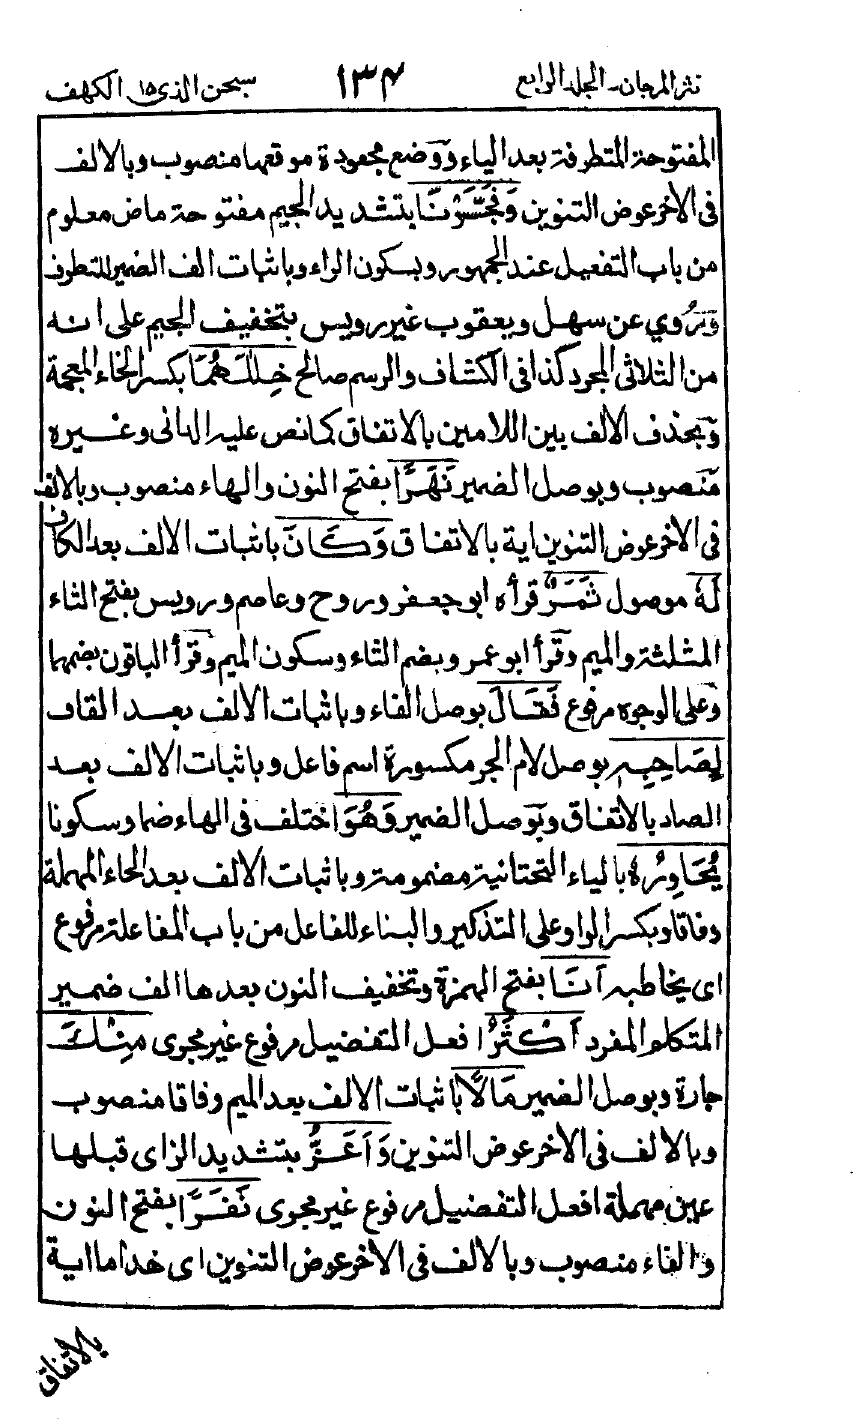 نثر المرجان۔ الجلد الرابع ١٣٤ سبحن الذی ١٥ الکهف
المفتوحة المتطرفة بعد الیاء ووضع مجعودة موقعها منصوب وبالالف
فی الاخر عوض التنوین وَفَجَّرْنَا بتشدید الجیم مفتوحة ماض معلوم
من باب التفعیل عند الجمهور وبسکون الراء وباثبات الف الضمیر للتطرف
وَرُوی عن سهل ویعقوب غیر رویس بتخفیف الجیم علی انه
من الثلاثی المجرد کذا فی الکشاف والرسم صالح خِلٰلَهُمَا بکسر الخاء المعجمة
وبحذف الالف بین اللامین بالاتفاق کما نص علیه الدانی وغیره
منصوب وبوصل الضمیر نَهَرًا بفتح النون والهاء منصوب وبالالف
فی الاخر عوض التنوین ایة بالاتفاق وَکَانَ باثبات الالف بعد الکاف
لَهٗ موصول ثَمَرٌ قرأه ابو جعفر وروح وعاصم ورویس بفتح الثاء
المثلثة والمیم وقرأ ابو عمرو بضم الثاء وسکون المیم وقرأ الباقون بضمهما
وعلی الوجوه مرفوع فَقَالَ بوصل الفاء وباثبات الالف بعد القاف
لِصَاحِبِهٖ بوصل لام الجر مکسورة اسم فاعل وباثبات الالف بعد
الصاد بالاتفاق وبوصل الضمیر وَهُوَ اختلف فی الهاء ضما وسکونا
یُحَاوِرُهٗ بالیاء التحتانیة مضمومة وباثبات الالف بعد الحاء المهملة
وفاقا وبکسر الواو علی التذکیر والبناء للفاعل من باب المفاعلة مرفوع
ای یخاطبه اَنَا بفتح الهمزة وتخفیف النون بعدها الف ضمیر
المتکلم المفرد اَکْثَرُ افعل التفضیل مرفوع غیر مجری مِنْكَ
جارة وبوصل الضمیر مَالًا باثبات الالف بعد المیم وفاقا منصوب
وبالالف فی الاخر عوض التنوین وَاَعَزُّ بتشدید الزای قبلها
عین مهملة افعل التفضیل مرفوع غیر مجری نَفَرًا بفتح النون
والفاء منصوب وبالالف فی الاخر عوض التنوین ای خداما ایة
بالاتفاق